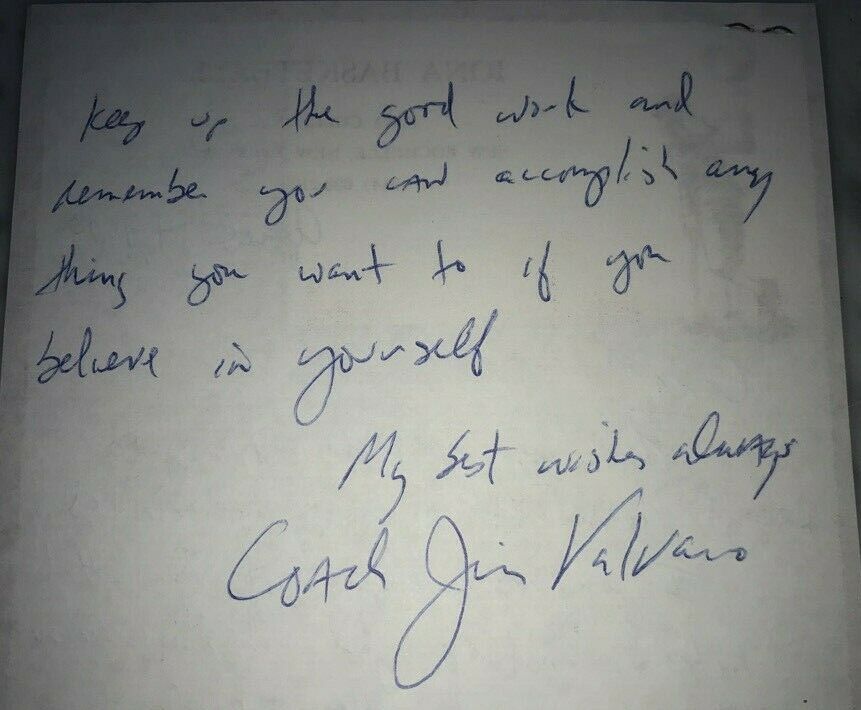 Keep up the good work and
remember you can accomplish any
thing you want to if you
believe in yourself
My best wishes always
Coach Jim Valvano